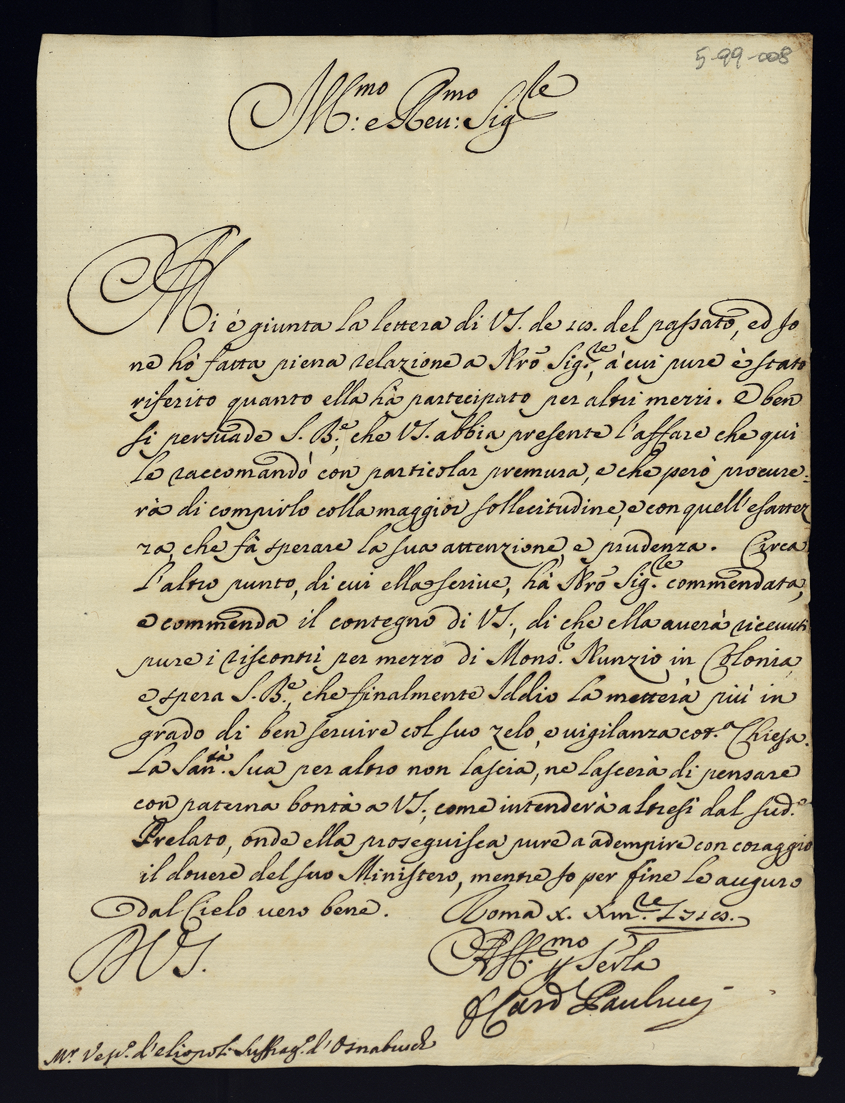 5-99-008
M:mo e Reu:mo Sigle
Mi è giunta la lettera di VS. de del passato, ed Jo
ne hò fatta piena relazione a Nrõ Sig.re, à cui pure è stato
riferito quanto ella hà partecipato per altri mezzi. e ben
si persuade S. B.e, che VS. abbia presente l'affare che qui
le raccomandò con particolar premura, e che però procure=
rà di compirlo colla maggior sollecitudine, e con quell'esattez
za, che fà sperare la sua attenzione, e prudenza. Circa
l'altro punto, di cui ella scriue, hà Nrõ Sig.re commendata,
e commenda il contegno di VS., di che ella auerà riceuuti
pure i riscontri per mezzo di Mons.r Nunzio in Colonia,
e spera S. B.e, che finalmente Iddio la metterà più in
grado di ben seruire col suo zelo, e uigilanza cot.a Chiesa.
La San.tà Sua per altro non lascia, ne lascerà di pensare
con paterna bontà a VS., come intenderà altresì dal sud.o
Prelato, onde ella proseguisca pure a adempire con coraggio
il douere del suo Ministero, mentre Jo per fine le auguro
dal Cielo uero bene. Roma X. Xm.re
D VS.
Aff.mo p Serla
Il Card Paulucci
Mr. Vesc.o d'Eliopoli Suffrag.o d'Osnabruch